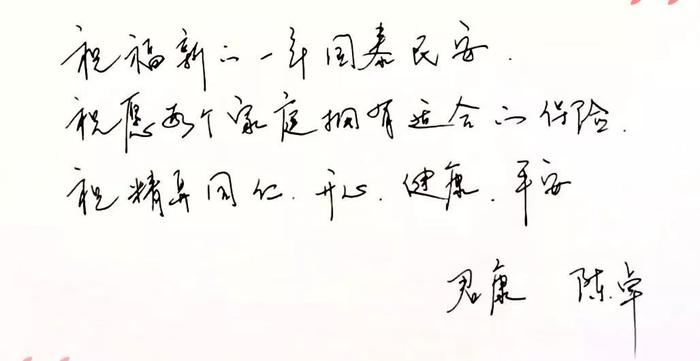 祝福新的一年国泰民安.
祝愿每个家庭拥有适合的保险.
祝精算同仁.开心.健康.平安
君康 陈卓